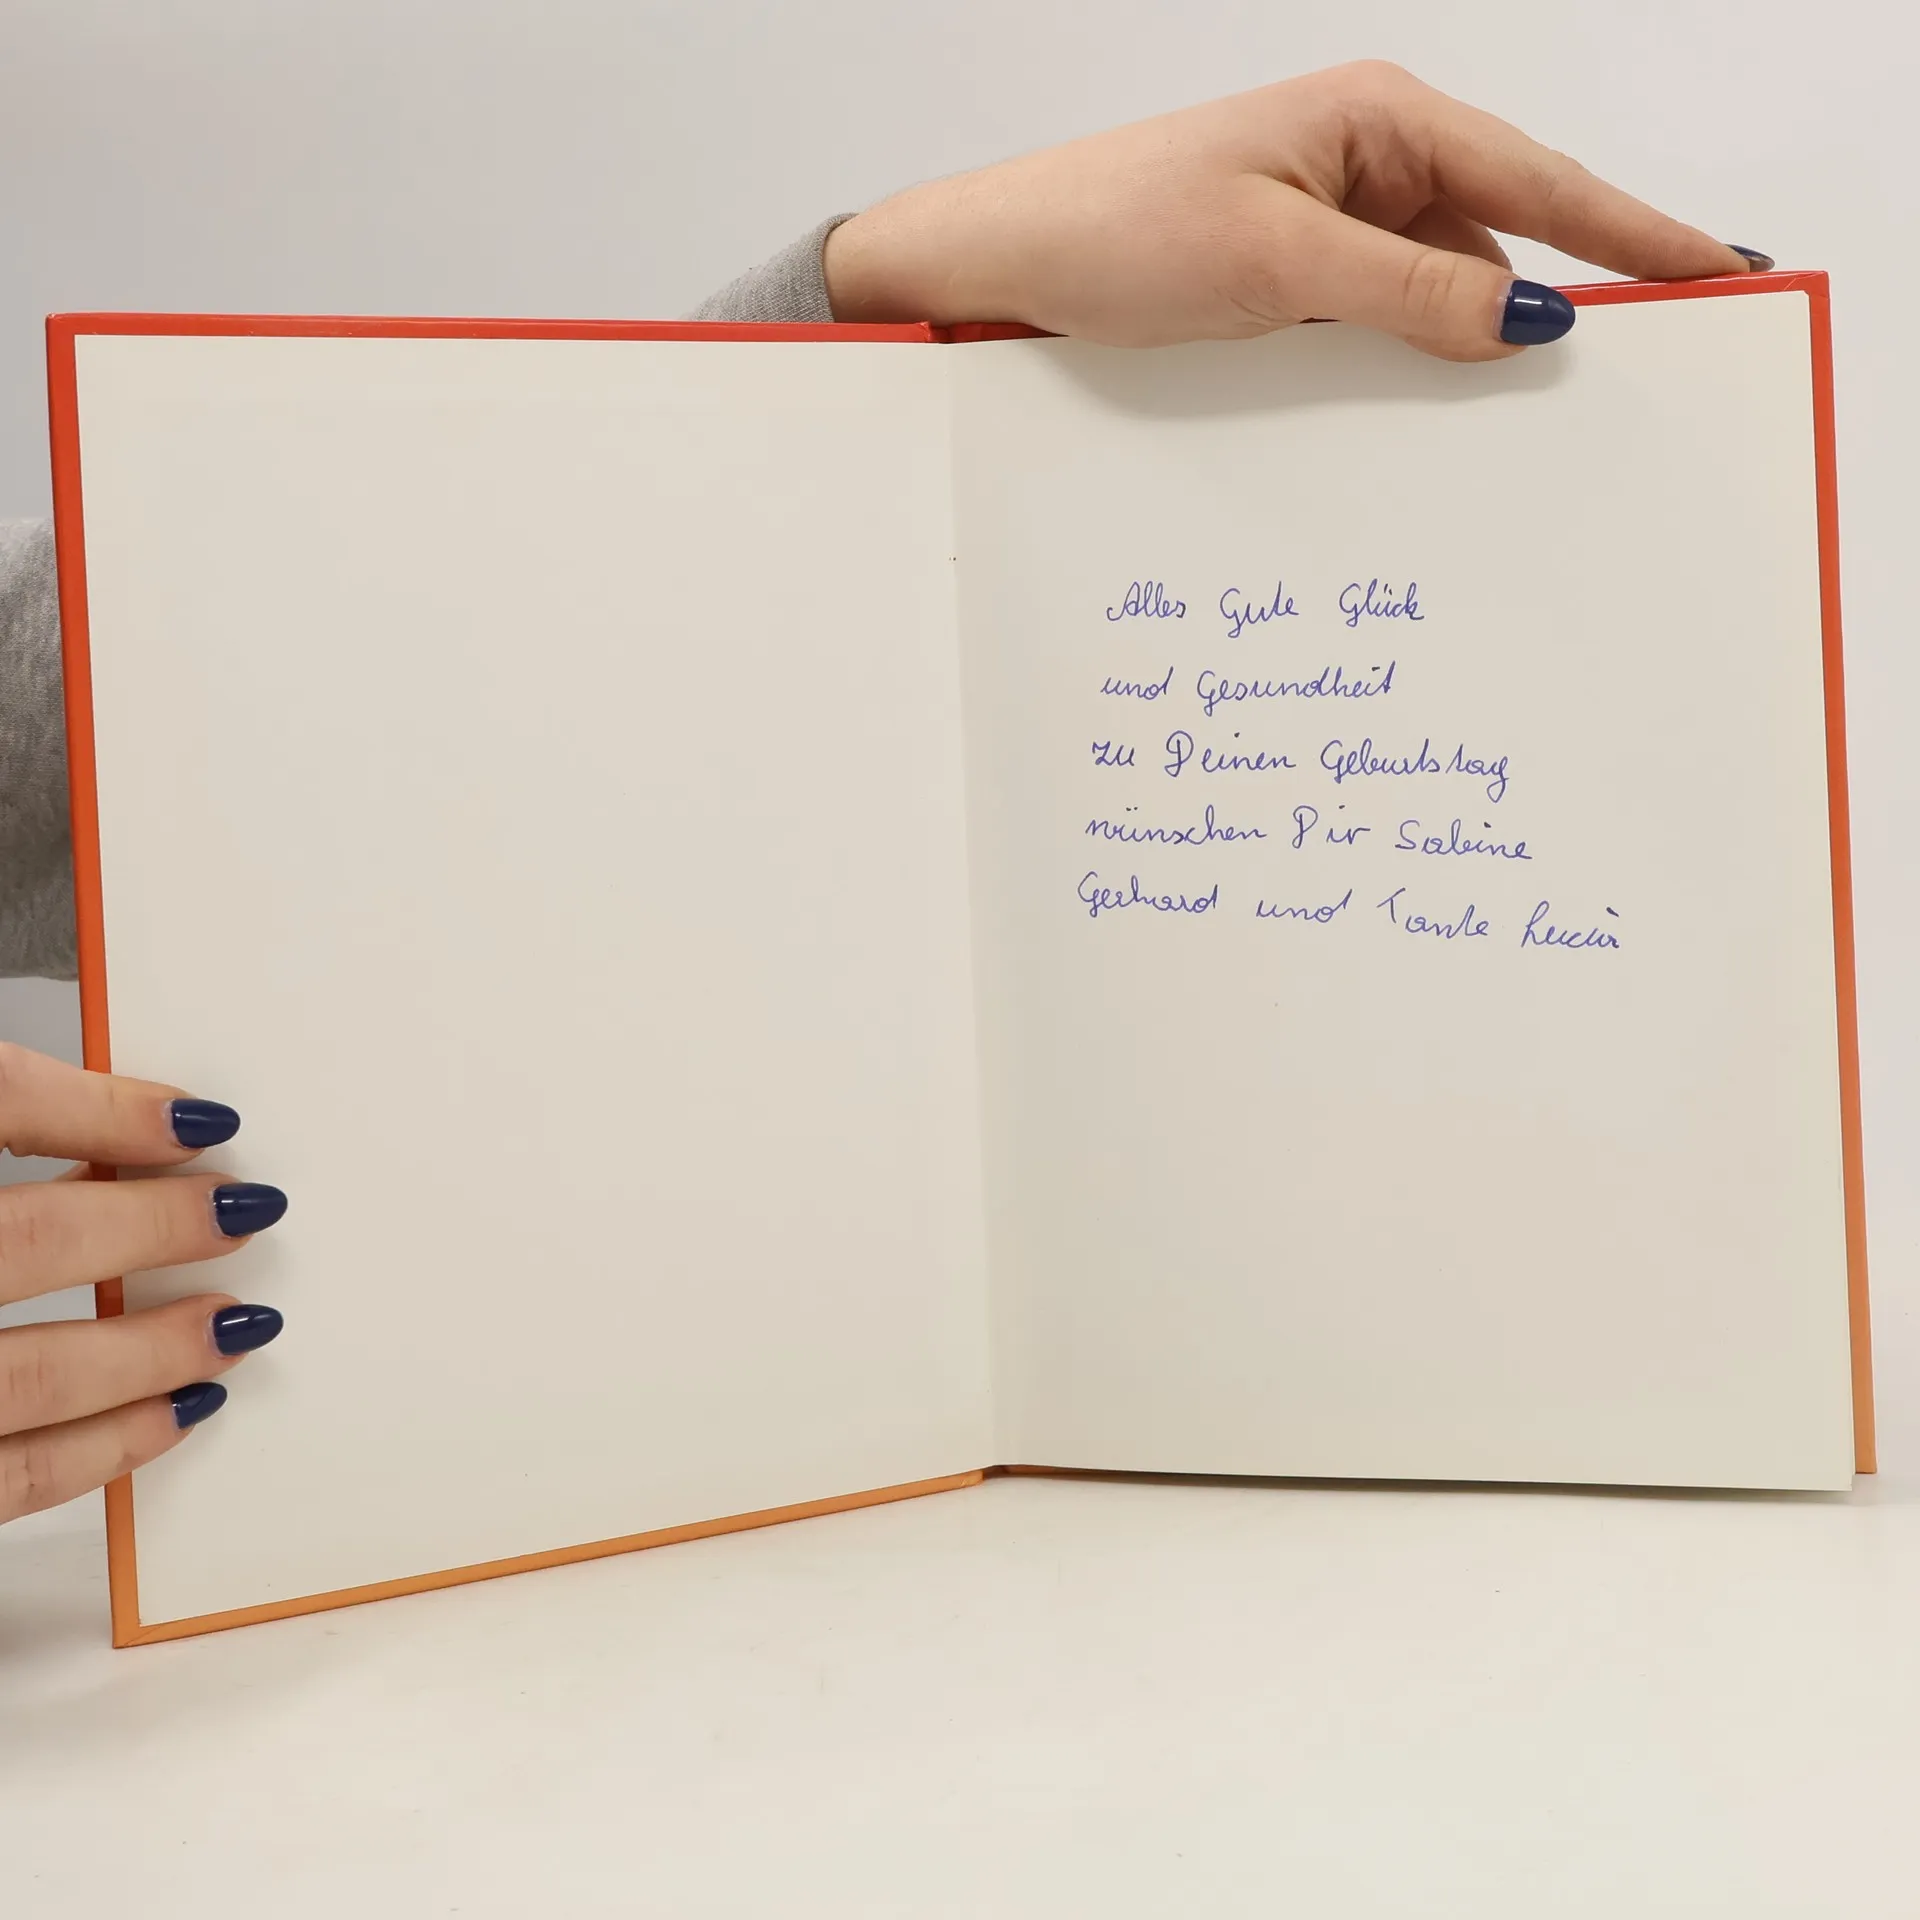 Alles Gute Glück
und Gesundheit
zu Deinen Geburtstag
wünschen Dir Sabine
Gerhard und Tante